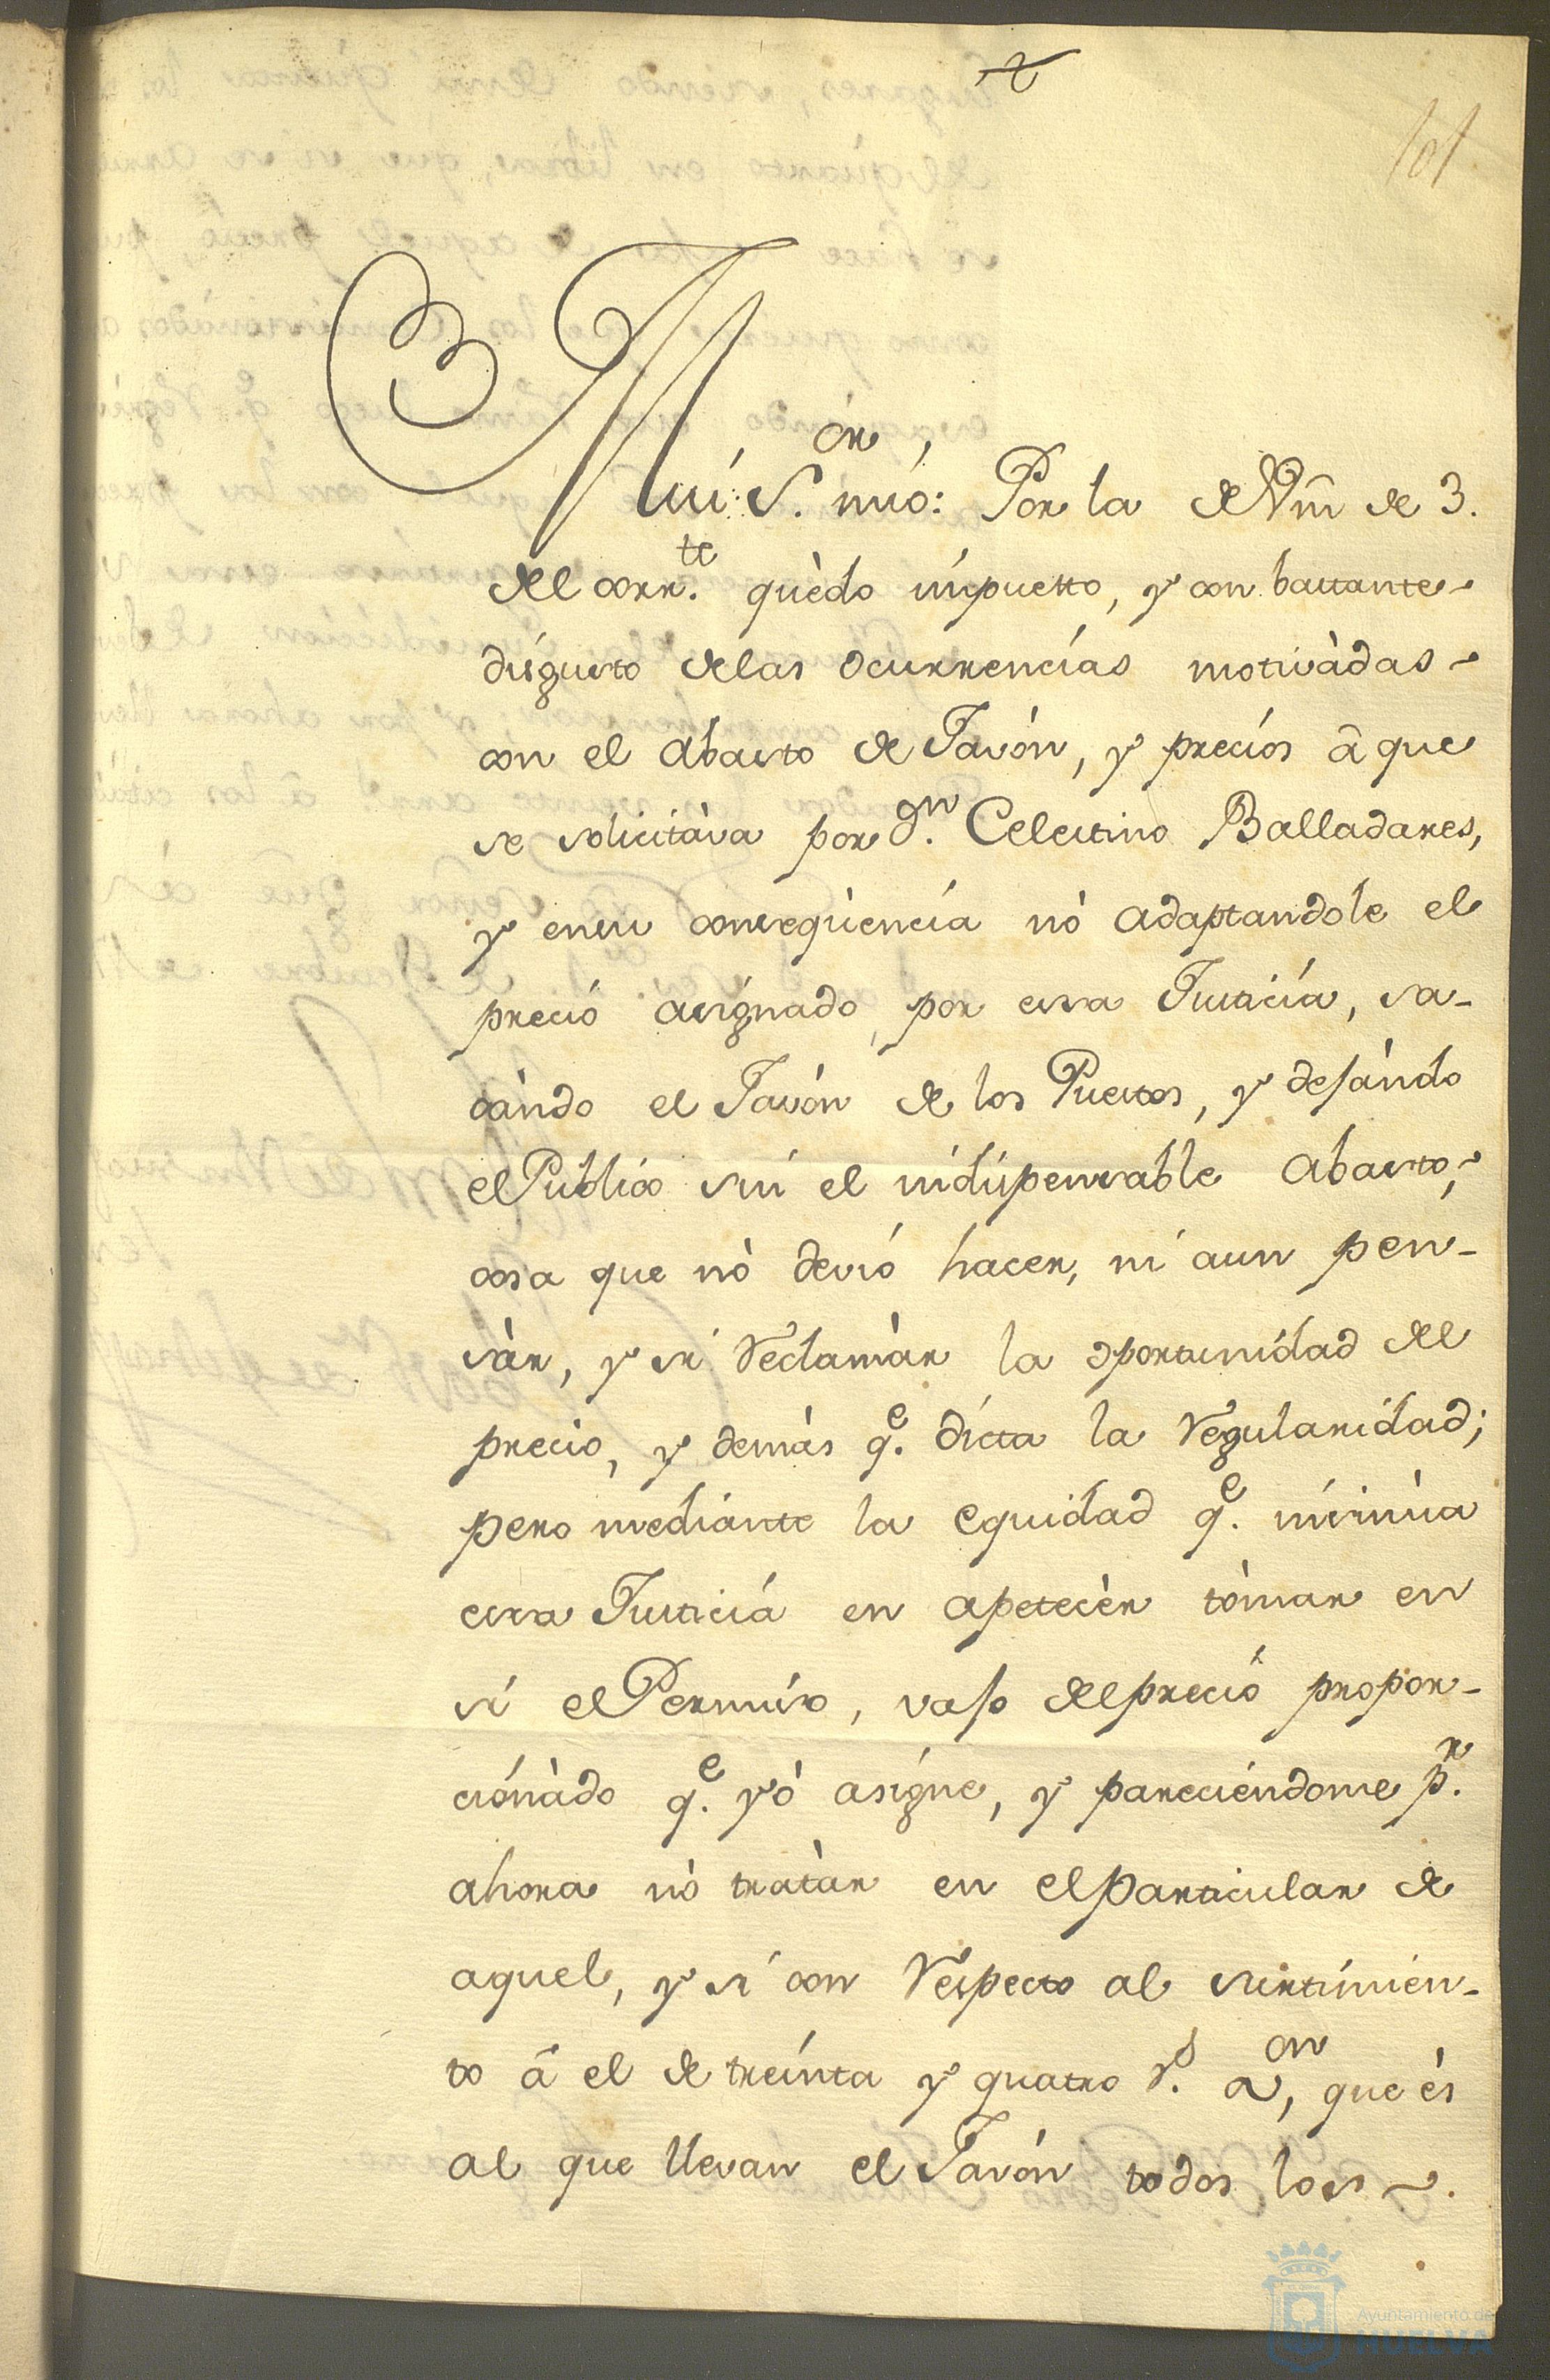 101
Mui S.or mió: Por la de Vm̃ de 3.
del corr.te quèdo impuesto, y con bastante
disgusto delas ocurrencías motivàdas
con el abasto de Javón, y precíos â que
se solicitàva por d.n Celestino Balladares,
y ensu conseqüencía nò adaptandole el
preció asígnado, por essa Justicía, sa-
càndo el Javòn de los Puestos, y dejàndo
el Público sin el indispensable abasto,
cosa que nò devió hacer, ni aun pen-
sàr, y si reclamàr la oportunidad del
precio, y demàs q.e dícta la regularidad;
pero mediànte la equidad q.e insinùa
essa Justiciá en apetecèr tòmar en
sí el Permiso, vajo del preció propor-
ciónàdo q.e yò asígne, y pareciéndome p.r
ahora nò tratàr en el particular de
aquel, y si con respecto al surtimíen-
to â el de treínta y quatro r.s @on, que ès
al que llevan el Javón todos los
Ayuntamiento de
HUELVA